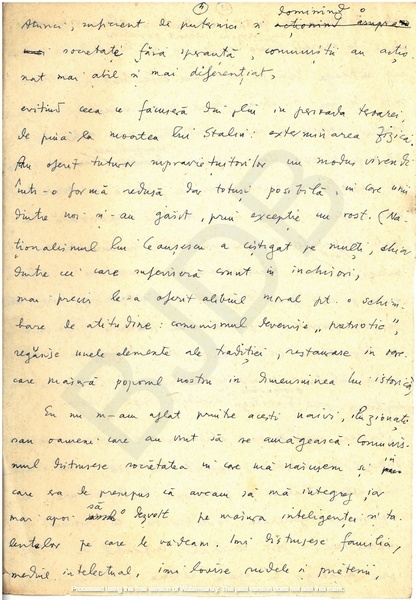 5
Atunci, suficient de puternici și dominînd o
societate fără speranță, comuniștii au acțio-
nat mai abil și mai diferențiat,
evitînd ceea ce făcuseră din plin în perioada teroarei,
de pînă la moartea lui Stalin: exterminarea fizică.
Au oferit tuturor supraviețuitorilor un modus vivendi
într-o formă redusă dar totuși posibilă în care unii
dintre noi și-au găsit, prin excepție un rost. (Na-
ționalismul lui Ceaușescu a cîștigat pe mulți, chiar
dintre cei care suferiseră crunt în închisori,
mai precis le-a oferit alibiul moral pt. o schim-
bare de atitudine: comunismul devenise "patriotic",
regăsise unele elemente ale tradiției, restaurase în oare-
care măsură poporul nostru în dimensiunea lui istorică)
Eu nu m-am aflat printre acești naivi, iluzionați
sau oameni care au vrut să se amăgească. Comunis-
mul distrusese societatea în care mă născusem și în
care era de presupus că aveam să mă integrez iar
mai apoi să o dezvolt pe măsura inteligenței și ta-
lentelor pe care le vădeam. Îmi distrusese familia,
mediul intelectual, îmi lovise rudele și prietenii,
BJDB